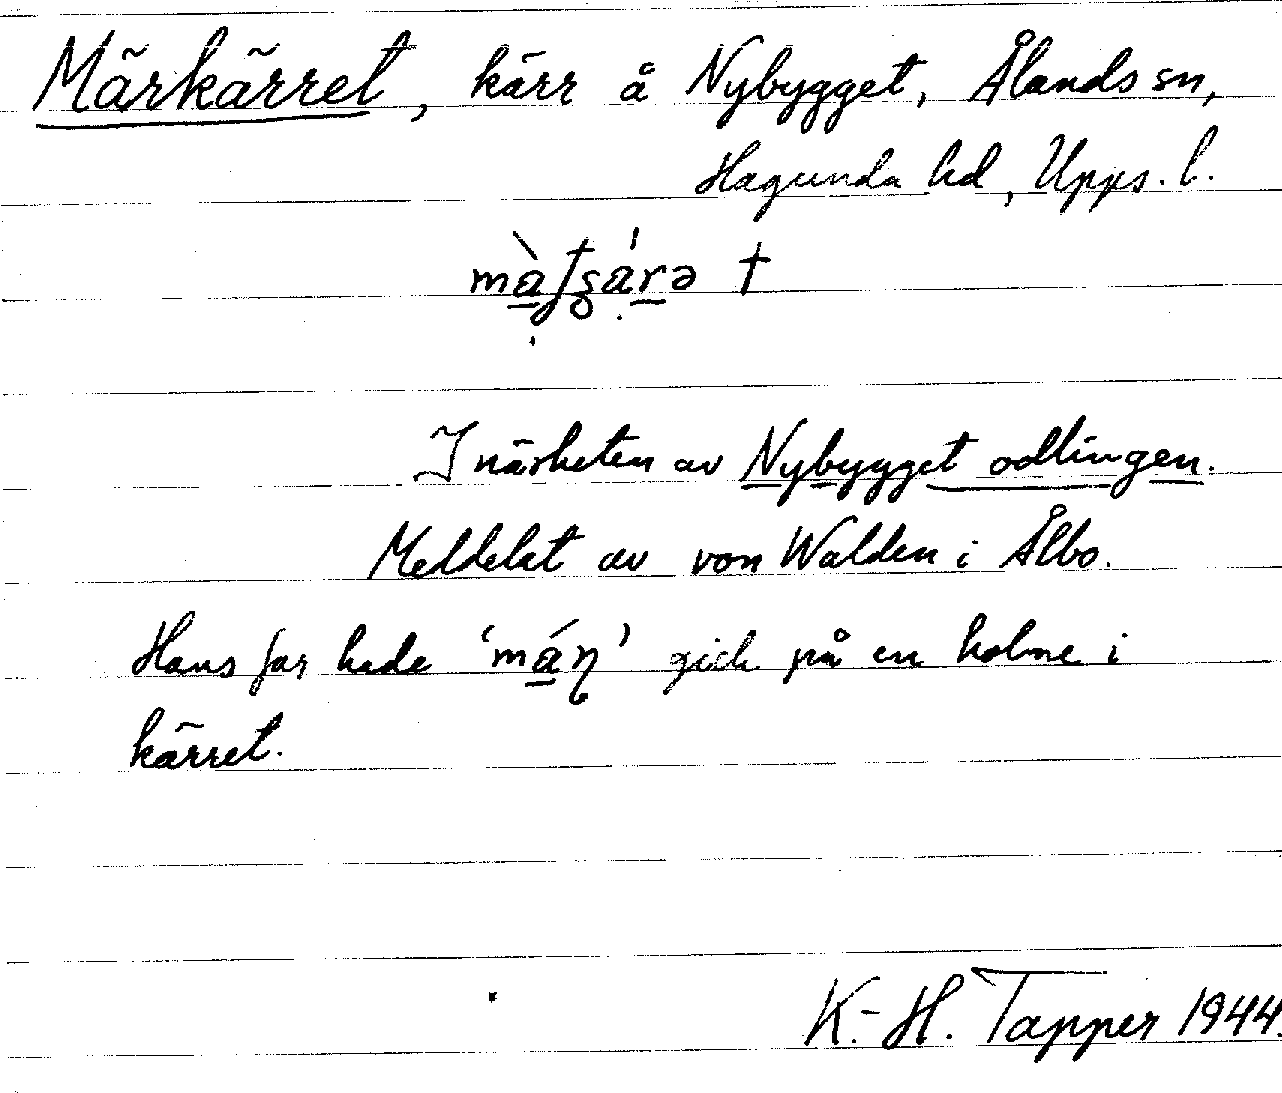 Märkärret, kärr å Nybygget, Ålands sn,
Hagunda hd, Upps. l.
†
I närheten av Nybygget odlingen.
Meddelat av von Walden i Ålbo.
Hans far hade 'má̱η' gick på en holme i
kärret.
K.-H. Tapper 1944.